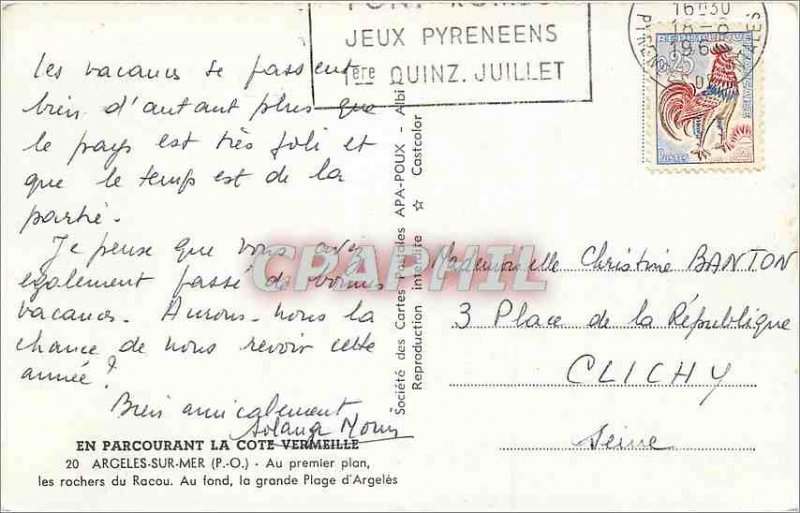 JEUX PYRENEENS
1ère QUINZ. JUILLET
16H30
18-8
196
PYREN
ALES
25
POSTES
Les vacances se passent
bien d'autant plus que
le pays est très joli et
que le temps est de la
partie.
Je pense que vous avez
également passé de bonnes
vacances. Aurons-nous la
chance de nous revoir cette
année?
Bien amicalement
Solange
EN PARCOURANT LA COTE VERMEILLE
20 ARGELES-SUR-MER (P.-O.) - Au premier plan,
les rochers du Racou. Au fond, la grande Plage d'Argelès
Société des Cartes Postales APA-POUX - Albi
Reproduction interdite ☆ Castcolor
CPAPHIL
Mademoiselle Christine BANTON
3 Place de la République
CLICHY
Seine